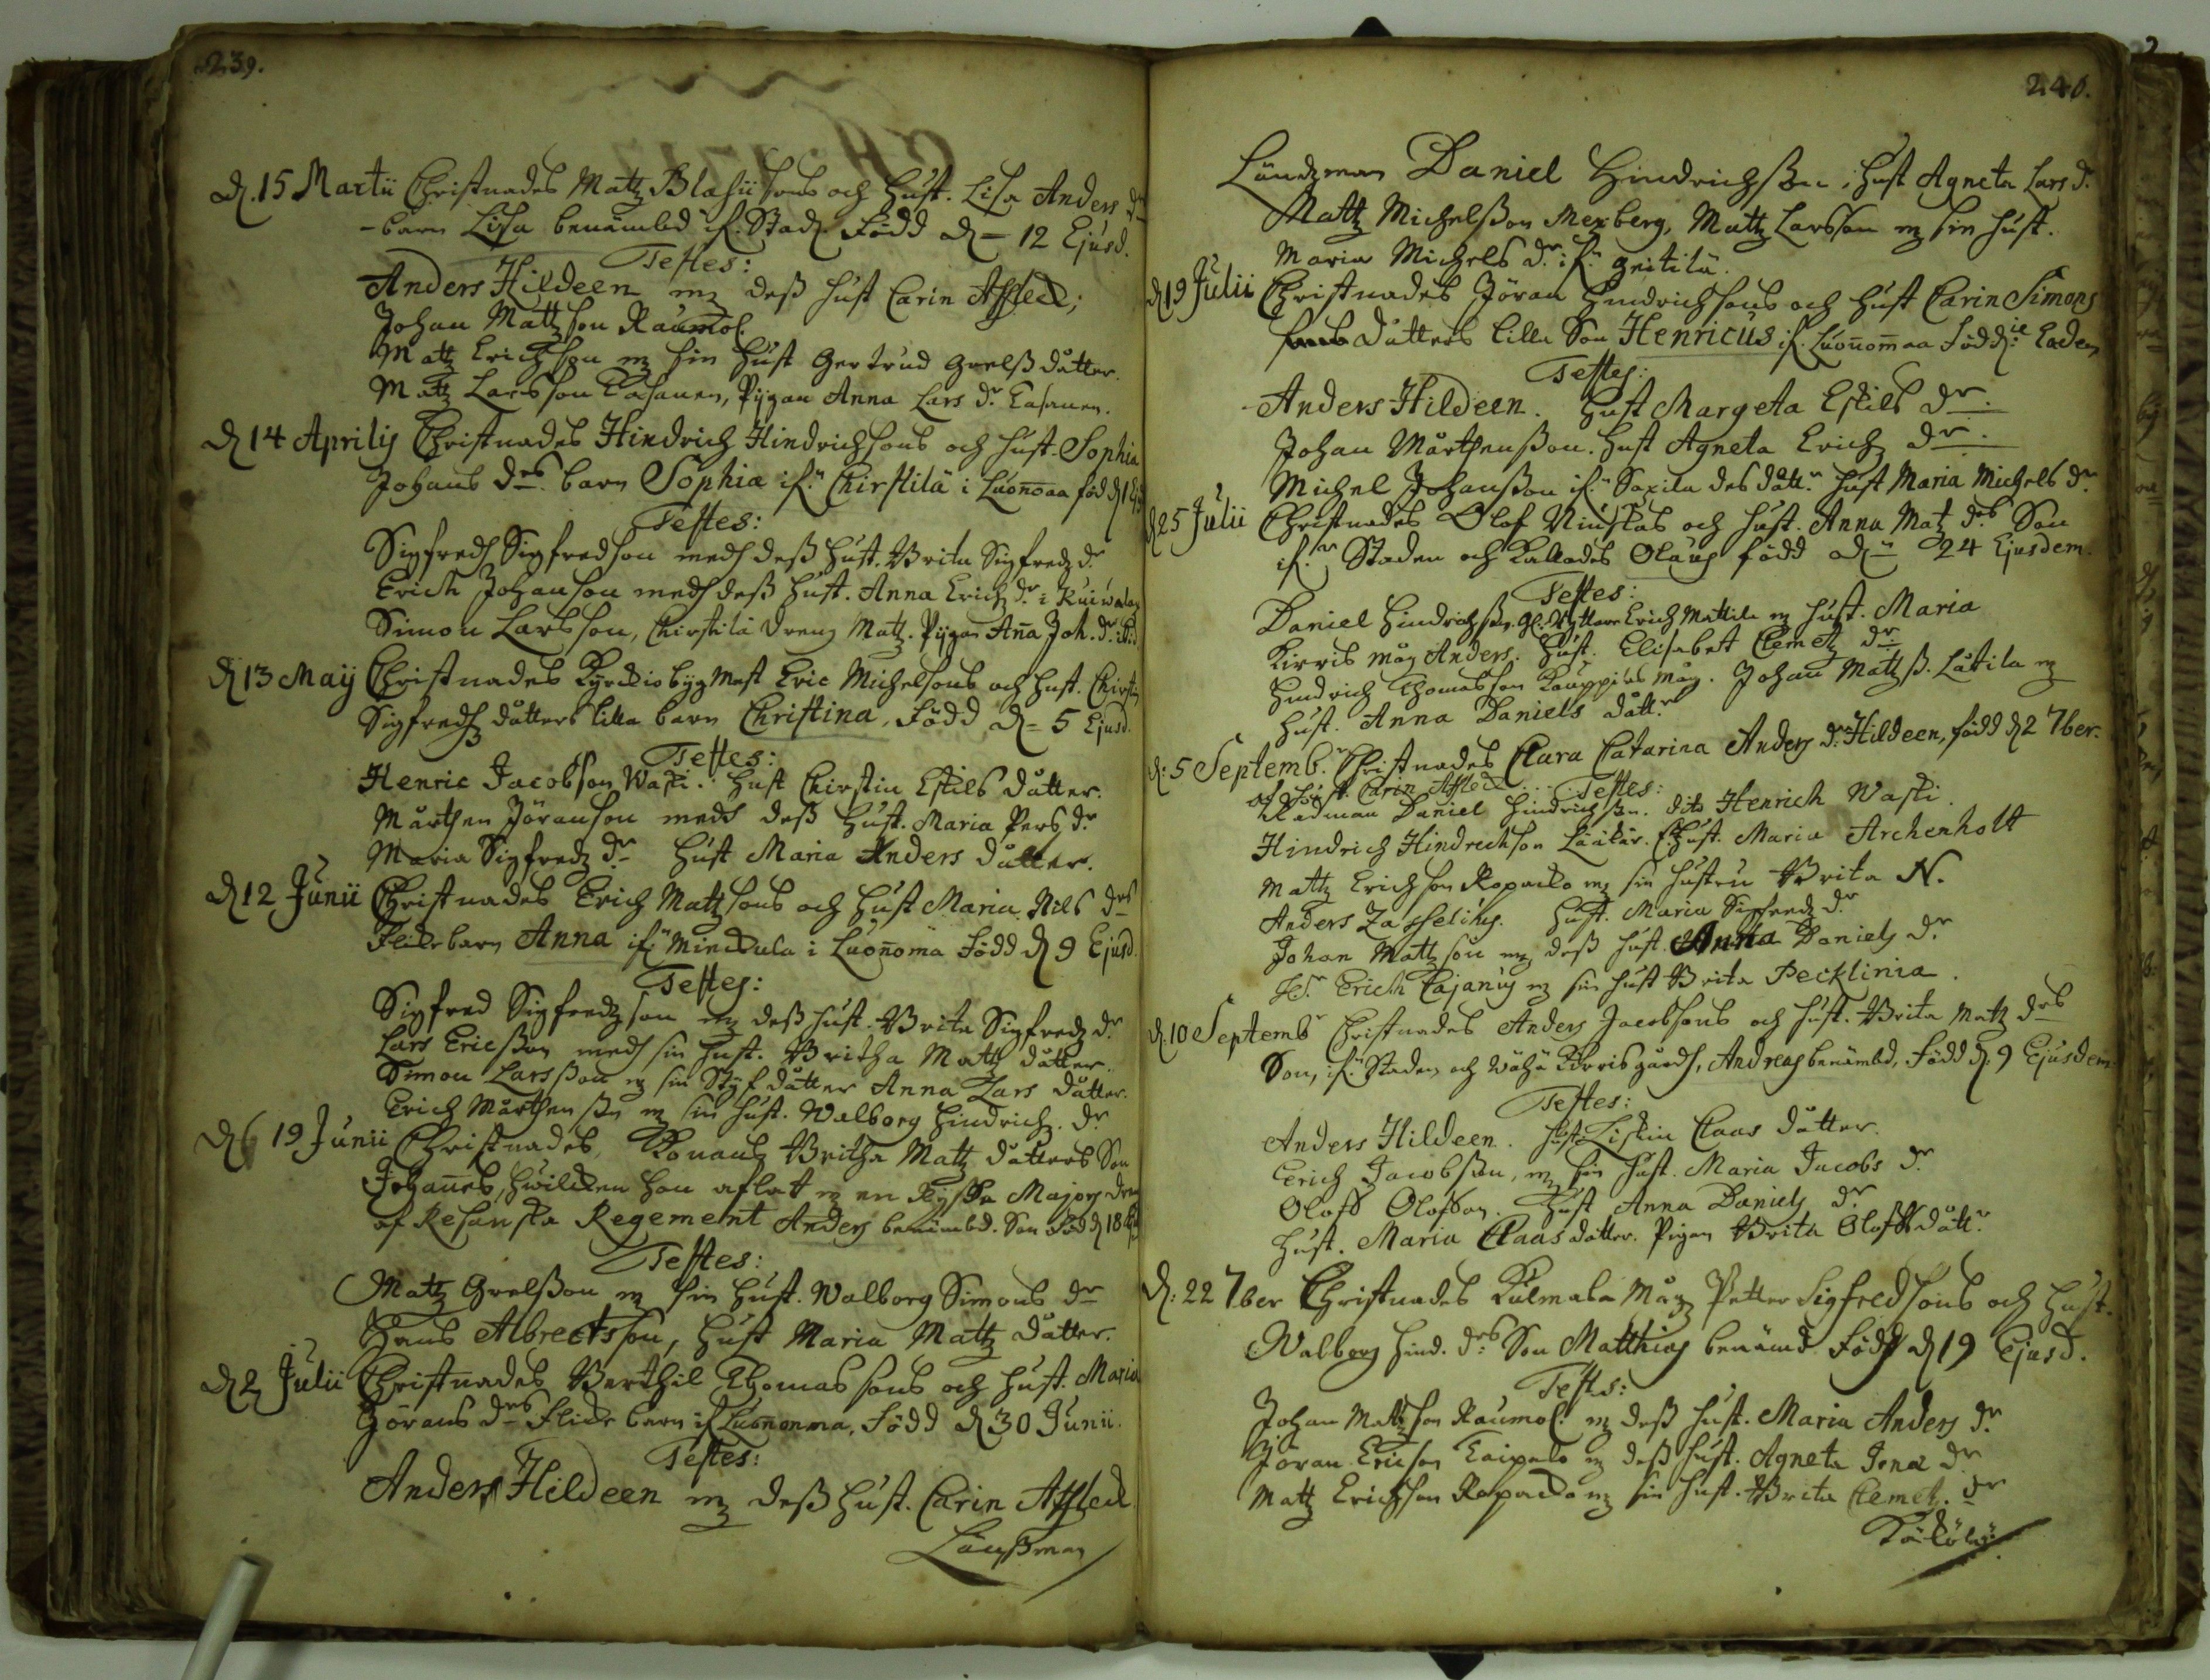 239.
d. 15 Martii Christnades Matz Blasiisons och Hust. Lisa Anders dr
barn Lisa benämbd if. Stad. Född d 12 Ejusd.
Testes:
Anders Hildeen m deß Hust Carin Affleck;
Johan Mattzson Raumol.
Matz Erichson m sin Hust Gertrud Grelß dåtter.
Matz Larsson Casanen, Pijgan Anna Lars dr Casanen.
d 14 Aprilis Christnades Hindrich Hindrichsons och Hust. Sophia
Johans drs barn Sophia if. Chirstilä i Luonoaa född d 1 Ejus
Testes:
Sigfredh Sigfredson medh deß Hust. Brita Sigfredz dr
Erich Johanson medh deß Hust. Anna Erichz dr i Kuiwala
Simon Larsson, Chirstilä dreng Matz. Pijgan Aña Joh. dr ibid
d 13 Maij Christnades Kyrkiobygmest Eric Michelsons och Hust. Chirstin
Sigfredz dåtters lilla barn Christina, Född d 5 Ejusd.
Testes:
Henric Jacobson Waski. Hust Chirstin Eskils dåtter.
Mårthen Jöranson medh deß Hust. Maria Pers dr
Maria Sigfredz dr Hust Maria Anders dåtter.
d 12 Junii Christnades Erich Mattzsons och Hust Maria Nils drs
Flicke barn Anna if. Mieckula i Luoñoma Född d 9 Ejusd.
Testes:
Sigfred Sigfredzson m deß Hust. Brita Sigfredz dr
Lars Ericßon medh sin Hust. Britha Mattz dåtter.
Simon Larsßon m sin Styfdåtter Anna Lars dåtter.
Erich Mårthenßn m sin Hust. Walborg Hindrichz dr
d 19 Junii Christnades Konans Britha Mattz dåtters Son
Johañes, hwilcken hon aflat m en Ryßka Majors dreng
af Resanska Regement Anders benämbd. Son Född d 18 Ejus
Testes:
Matz Grelßon m sin Hust. Walborg Simons dr
Hans Albrectsson, Hust Maria Mattz dåtter.
d 2 Julii Christnades Berthil Thomassons och Hust. Maria
Görans drs Flicke barn if. Luononma, Född d 30 Junii.
Testes:
Anders Hildeen m deß Hust. Carin Affleck
Länßman
240.
Ländzman Daniel Hindrichßon, Hust Agneta Lars dr
Mattz Michelßon Mexberg, Mattz Larsson m sin Hust.
Maria Michels dr if. Heitilä.
d 19 Julii Christnades Jöran Hindrichsons och Hust Carin Simons
dåtters lilla Son Henricus if. Luonomaa Född die Eadem
Testes:
Anders Hildeen. Hust Margeta Eskils dr.
Johan Mårthenßon. Hust Agneta Erichz dr.
Michel Johanßon if. Saxila des dått. Hust Maria Michels dr
d 25 Julii Christnades Olof Niuskas och Hust. Anna Matz drs Son
if. Staden och Kallades Olaus född d 24 Ejusdem.
Testes:
Daniel Hindrichßn. Gl. Ryttare Erich Mattila m Hust. Maria
Kirris måg Anders. Hust. Elisabet Clemetz dr
Hindrich Thomasson Kauppilas måg. Johan Mattzß. Låtila m
Hust. Anna Daniels dåttr
d: 5 Septemb. Christnades Clara Catarina Anders dr Hildeen, född d 2 7ber.
af Hust. Carin Affleck. Testes:
Rådman Daniel Hindrichßn. dito Henrich Waski.
Hindrich Hindrichson Läckär. Hust. Maria Archenholt
Mattz Erichson Ropacko m sin Hustru Brita N.
Anders Zasseling. Hust. Maria Sigfredz dr
Johan Mattzson m deß Hust. Anna Daniels dr
Hr. Erich Cajanus m sin Hust Brita Pecklinia.
d. 10 Septembr Christnades Anders Jacobsons och Hust. Brita Matz drs
Son, if. Staden och Wähä Kirris gårdh, Andreas benämbd, Född d. 9 Ejusdem.
Testes:
Anders Hildeen. Hust Liskin Claas dåtter.
Erich Jacobßon, m sin Hust. Maria Jacobs dr
Oloff Olofson. Hust Anna Daniels dr
Hust. Maria Claas dåtter. Pigan Brita Olofsdåttr
d: 22 7ber Christnades Kulmala Måg Petter Sigfredsons och Hust.
Walborg Hind. drs Son Matthias benämd Född d 19 Ejusd.
Testes:
Johan Mattzson Raumol. m deß Hust. Maria Anders dr
Jöran Ericson Taipale m deß Hust. Agneta Jona dr
Mattz Erichson Ropacko m sin Hust. Brita Clemetz dr
Käkölä